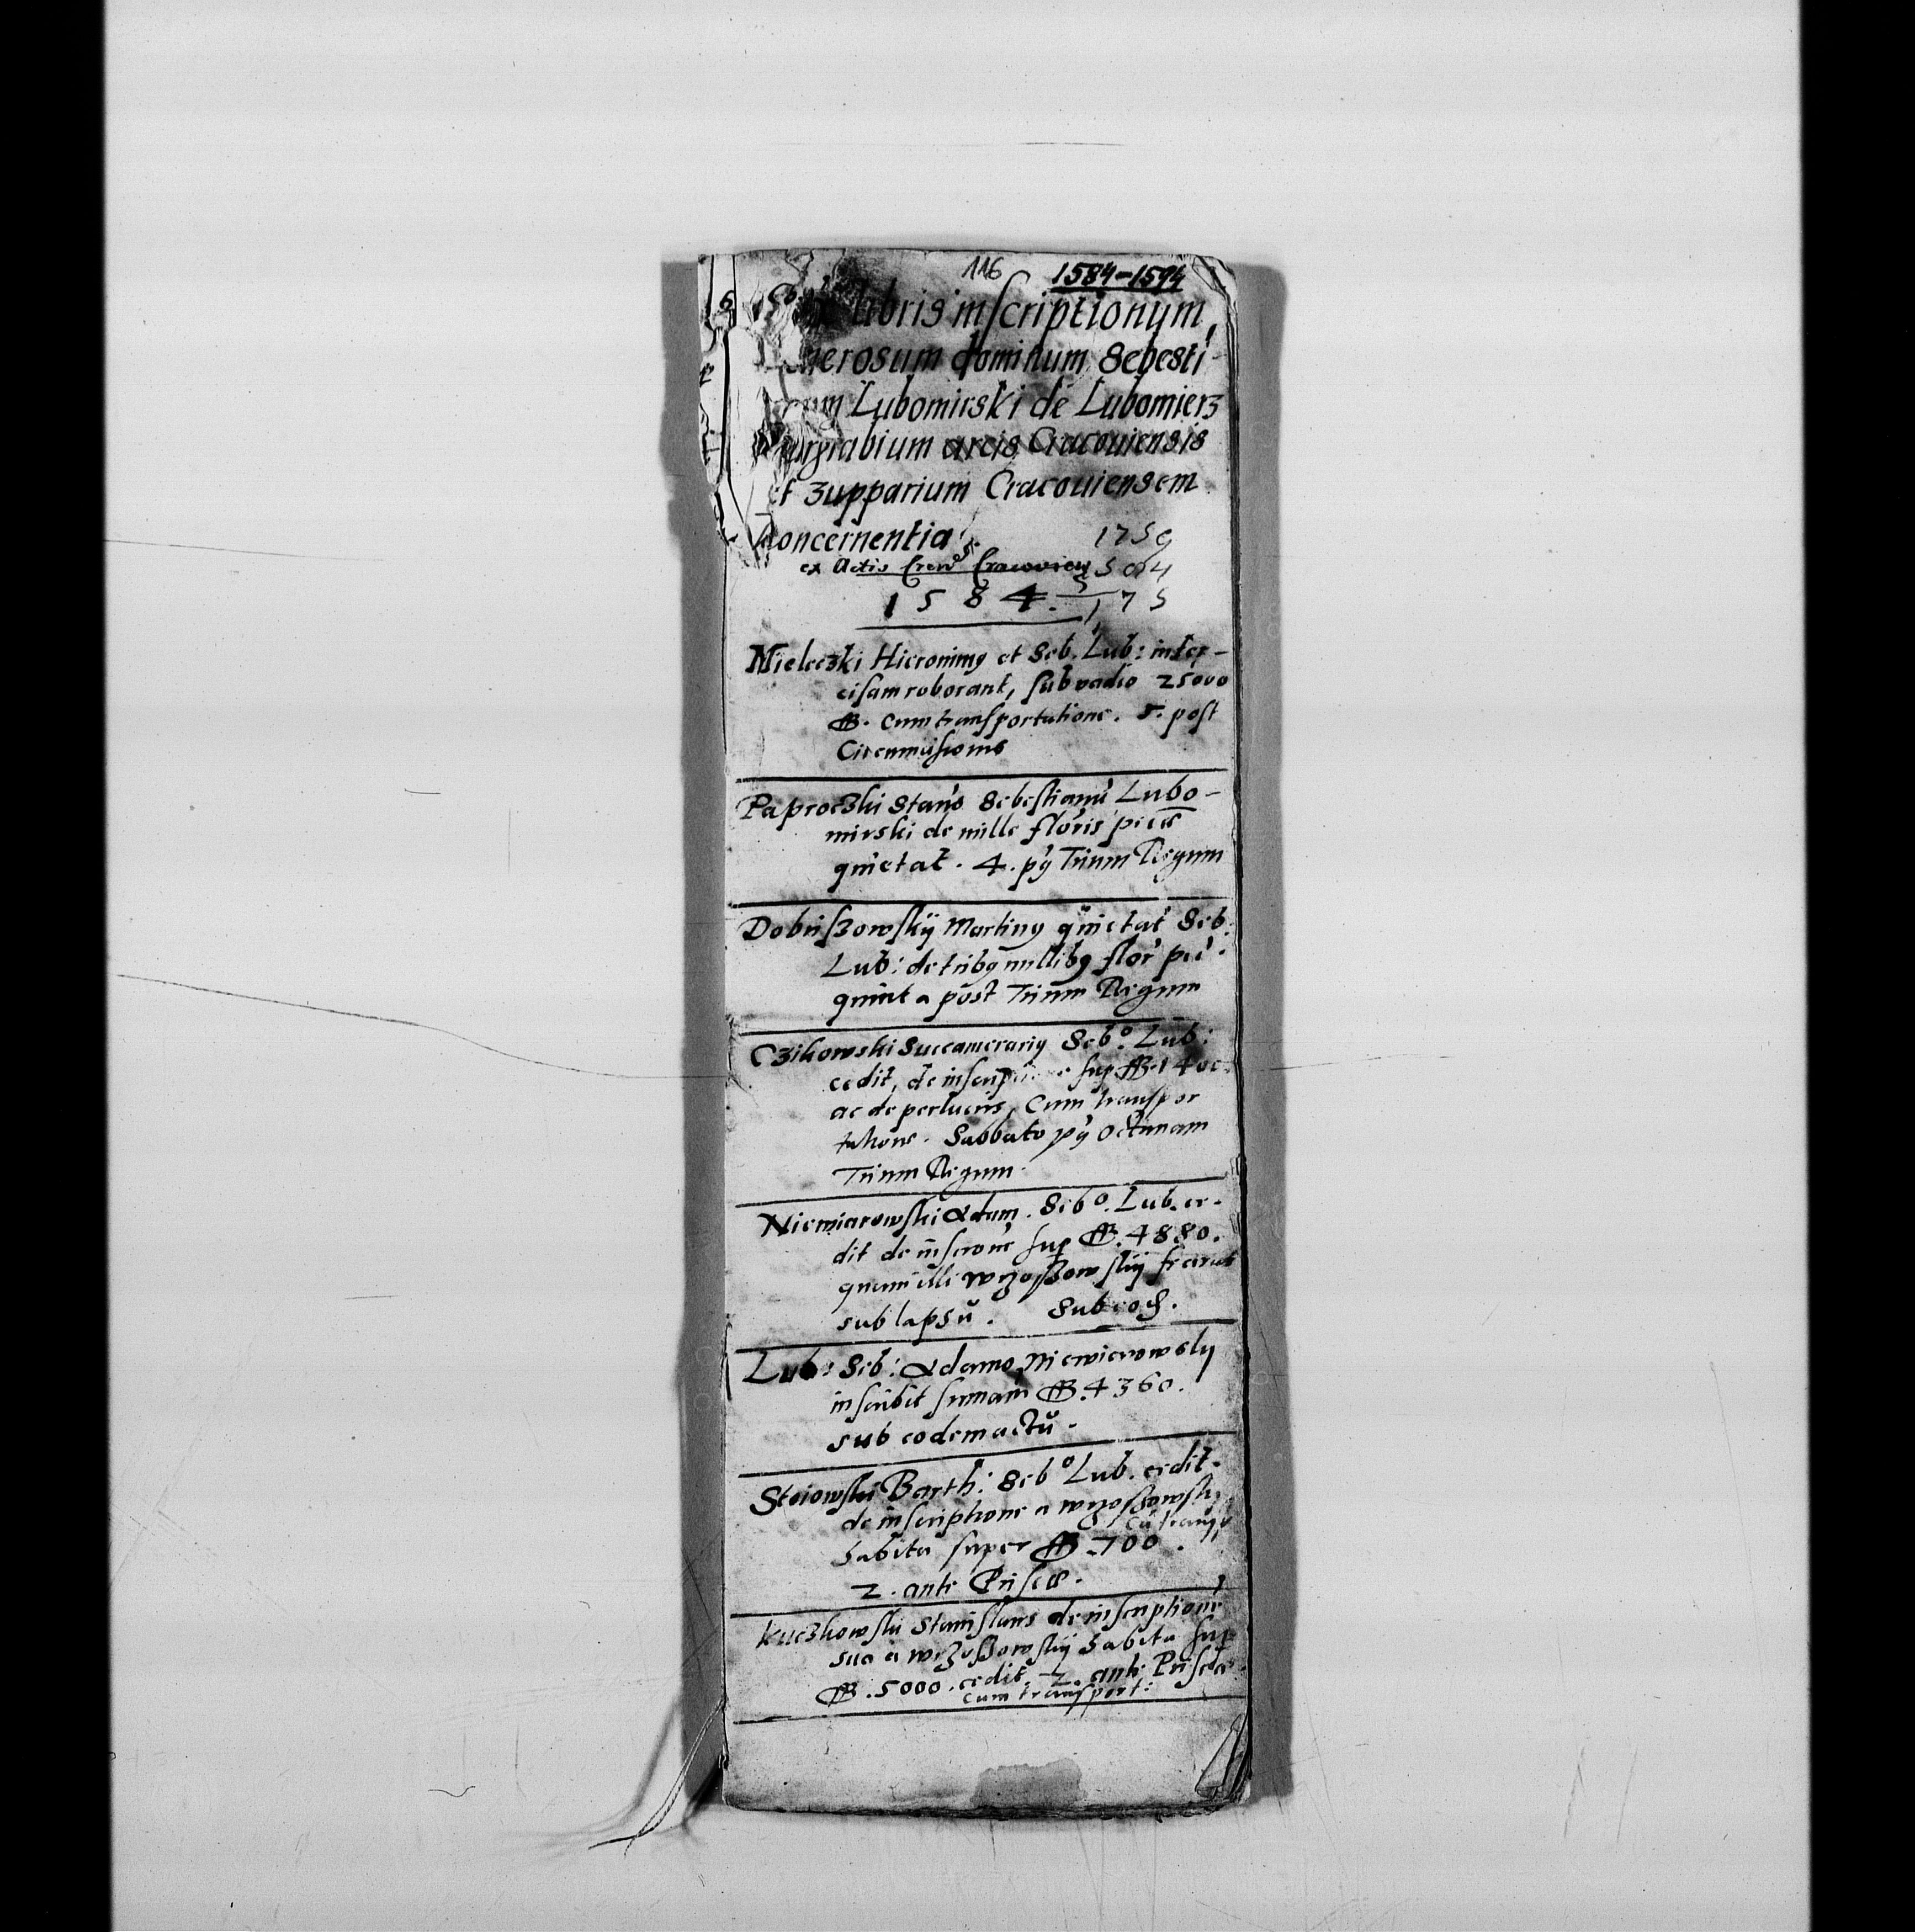 116 1584-1594
libris inscriptionum,
nerosum dominum Sebesti-
Lubomirski de Lubomierz
Burgrabium arcis Cracouiensis
et zupparium Cracouiensem
Concernentia
1759
ex Actis 504
1584. 175
Mieleczki Hieronimg et Seb. Lub: inter-
cisam roborant, sub vadio 25000
cum transportatione. 5. post
Circumcisionis
Paproczki Stan's Sebestianu Lubo-
mirski de mille floris pecu
quietat. 4. pg Trium Regum
Dobriszowskij Marting quietat Seb.
Lub: de tribg millibg flor pec:
quinta post Trium Regum
Czikowski Succamerarig Seb°. Lub:
cedit, de inscriptione sup
ac de perlucris, cum transpor
tatione. Sabbato pg octauam
Trium Regum.
Niemiarowski Adam. Seb°. Lub. ce-
dit de inscrone sup 4880.
quam illi wrzoszowskij
sub lapsu. Sub eod.
Lub: Seb: Adamo Niewierowsky
inscribit sumam 4360.
sub eodem actu.
Stoiowski Barth: Seb° Lub. cedit.
de inscriptione a wrzoszowsky
cu transp
habita super 700.
2. ante Prisce.
Kuczkowski Stanislaus de inscriptione
sua a wrzoszowskij habita sup
5000. cedit. 2. ante Prisca
cum transport: